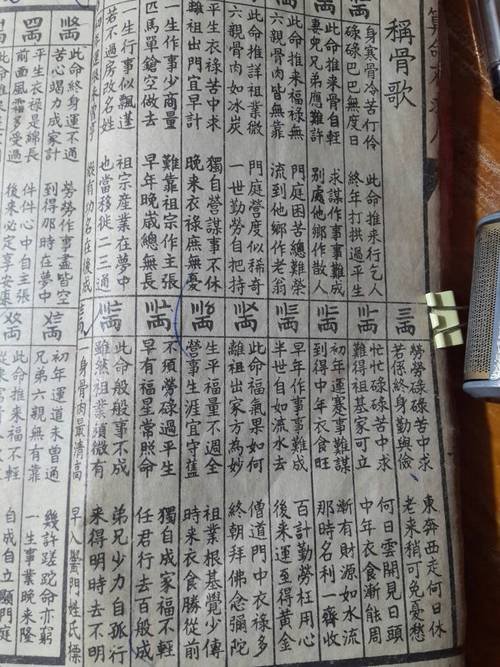 稱骨歌
身寒骨冷苦行伶 此命推來行乞人
碌碌巴巴無度日 終年打拱過平生
此命推來骨自輕 求謀作事事難成
妻兒兄弟應難許 別處他鄉作散人
此命推來福祿無 門庭困苦總難榮
六親骨肉皆無靠 流到他鄉作老翁
此命推詳祖業微 門庭營度似稀奇
六親骨肉如冰炭 一世勤勞自把持
平生衣祿苦中求 獨自營謀事不休
離祖出門宜早計 晚來衣祿庶無憂
一生作事少商量 難靠祖宗作主張
匹馬單鎗空做去 早年晚歲總無長
一生行事似飄蓬 祖宗產業在夢中
若不過房改名姓 也當移徙二三通
縱有功名在後成
此命終身運不通 勞勞作事盡皆空
苦心竭力成家計 到得那時在夢中
平生衣祿是綿長 件件心中自主張
前面風霜多受過 後來必定享安康
三兩
勞勞碌碌苦中求 東奔西走何日休
若係終身勤與儉 老來稍可免憂愁
忙忙碌碌苦中求 何日雲開見日頭
難得祖基家可立 中年衣食漸能周
初年運蹇事難謀 漸有財源如水流
到得中年衣食旺 那時名利一齊收
早年作事事難成 百計勤勞枉用心
半世自如流水去 後來運至得黃金
此命福氣果如何 僧道門中衣祿多
離祖出家方為妙 終朝拜佛念彌陀
生平福量不週全 祖業根基覺少傳
營事生涯宜守舊 時來衣食勝從前
不須勞碌過平生 獨自成家福不輕
早有福星常照命 任君行去百般成
此命般般事不成 弟兄少力自孤行
雖然祖業須微有 來得明時去不明
身骨肉最清高 早入黌門姓氏標
初年運道未曾通 幾許蹉跎命亦窮
兄弟六親無有靠 一生事業晚來隆
此命推來福不輕 自成自立顯門庭